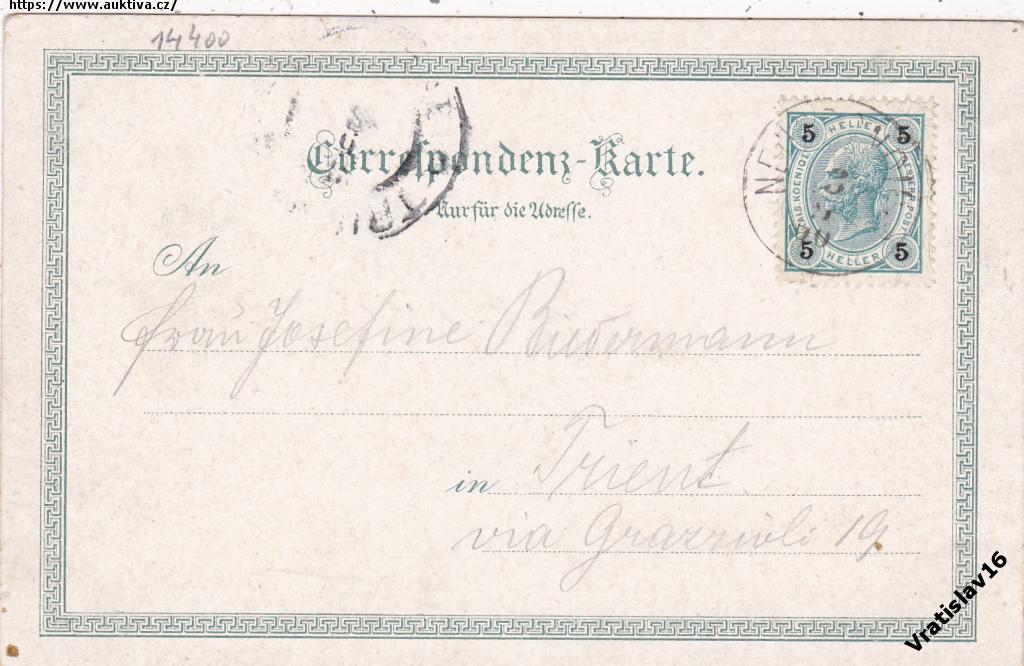 https://www.auktiva.cz/
14400
Correspondenz-Karte.
Nur für die Adresse.
5 HELLER 5
KAIS. KOENIGL. OESTERR. POST
5 HELLER 5
An
Frau Josefine Biedermann
in Trient
via Grazzioli 19
Vratislav16